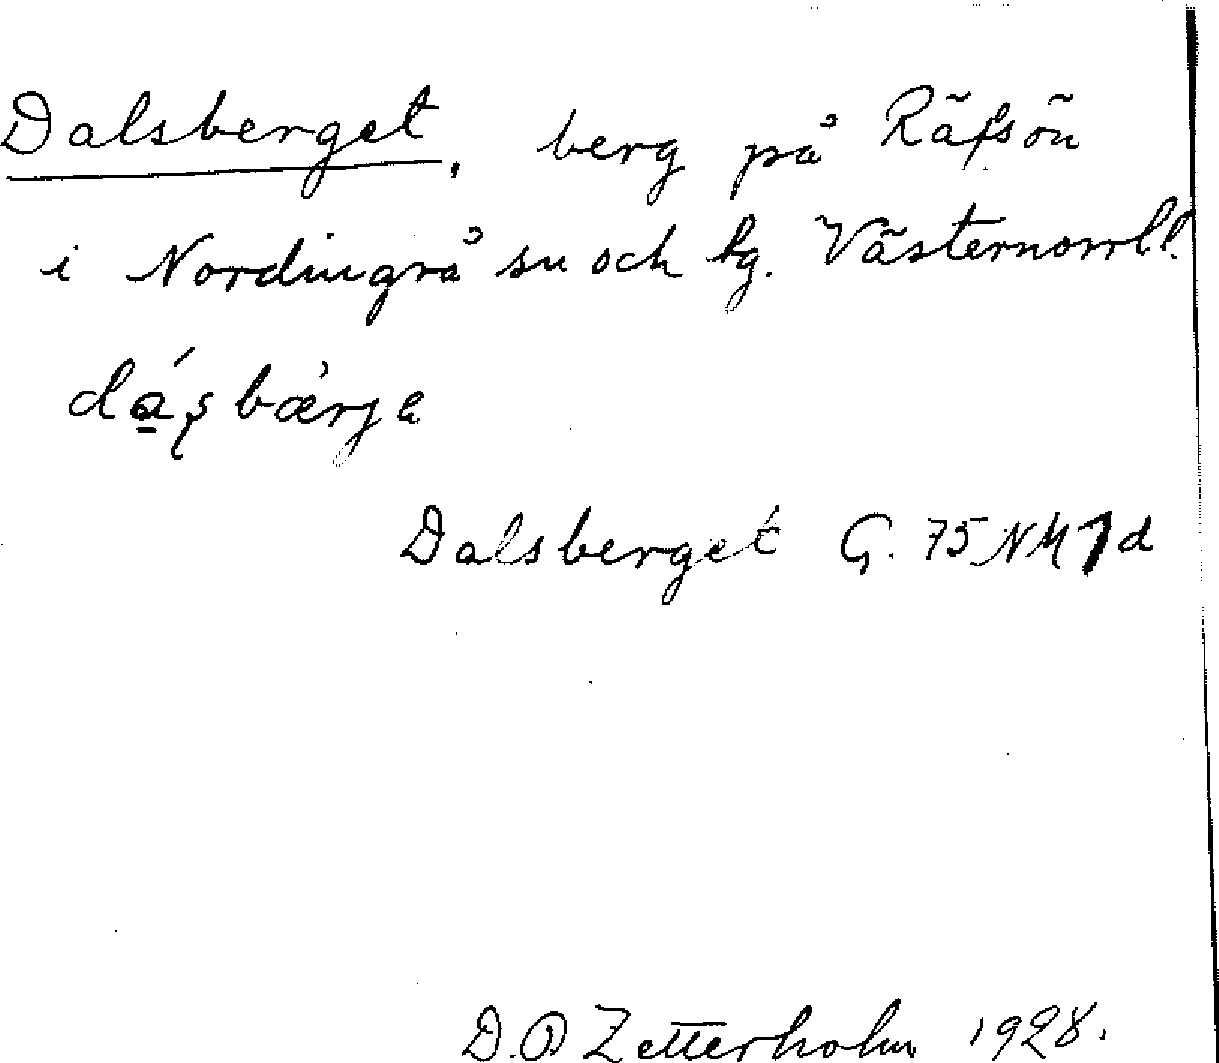 Dalsberget, berg på Räfsön
i Nordingrå sn och tg. Västernorrl l.
dáʂbærje
Dalsberget G. 75 NM 1 d
D.O Zetterholm 1928.